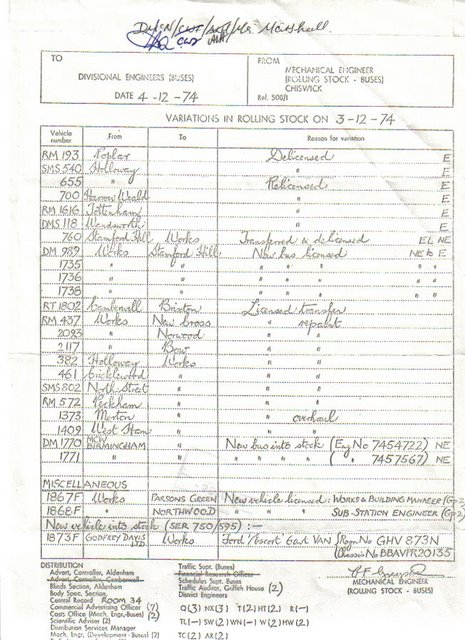 Marshall.
TO
FROM
DIVISIONAL ENGINEERS (BUSES)
MECHANICAL ENGINEER
(ROLLING STOCK - BUSES)
CHISWICK
DATE 4-12-74
Ref. 508/1
VARIATIONS IN ROLLING STOCK ON 3-12-74
Vehicle number From To Reason for variation
RM 193 Poplar Delicensed E
SMS 540 Holloway " E
655 " Relicensed E
700 Harrow Weald " E
RM 1616 Tottenham " E
DMS 118 Wandsworth " E
760 Stamford Hill Works Transferred & delicensed EL NE
DM 989 Works Stamford Hill New bus licensed NE to E
1735 " " " " " " "
1736 " " " " " " "
1738 " " " " " " "
RT 1802 Camberwell Brixton Licensed transfer
RM 437 Works New Cross " repaint
2023 " Norwood " "
2117 " Bow " "
382 Holloway Works " "
461 Cricklewood " " "
SMS 802 North Street " " "
RM 572 Peckham " " "
1373 Merton " " overhaul
1409 West Ham " " "
DM 1770 MCW BIRMINGHAM " New bus into stock (Eng No 7454722) NE
1771 " " " " " " ( " 7457567) NE
MISCELLANEOUS
1867F Works PARSONS GREEN New vehicle licensed: WORKS & BUILDING MANAGER (Gp2)
1868F " NORTHWOOD " " " SUB-STATION ENGINEER (Gp2)
New vehicle into stock (SER 750/595) :-
1873F GODFREY DAVIS LTD Works Ford Escort 6cwt VAN Regn No GHV 873N
Chassis No BBAVPR20135
DISTRIBUTION
Advert. Controller, Aldenham
Advert. Controller, Camberwell
Blinds Section, Aldenham
Body Spec. Section,
Central Record ROOM 34
Commercial Advertising Officer (7)
Costs Office (Mech. Engr. Buses) (2)
Scientific Adviser
Distribution Services Manager
Mech. Engr. (Development - Buses) (2)
Traffic Supt. (Buses)
Financial Research Officer
Schedules Supt. Buses
Traffic Auditor, Griffith House (2)
District Engineers
Q(3) NX(3) T(2) HT(2) R(-)
TL(-) SW(2) WN(-) W(2) HW(2)
TC(2) AR(2)
MECHANICAL ENGINEER
(ROLLING STOCK - BUSES)